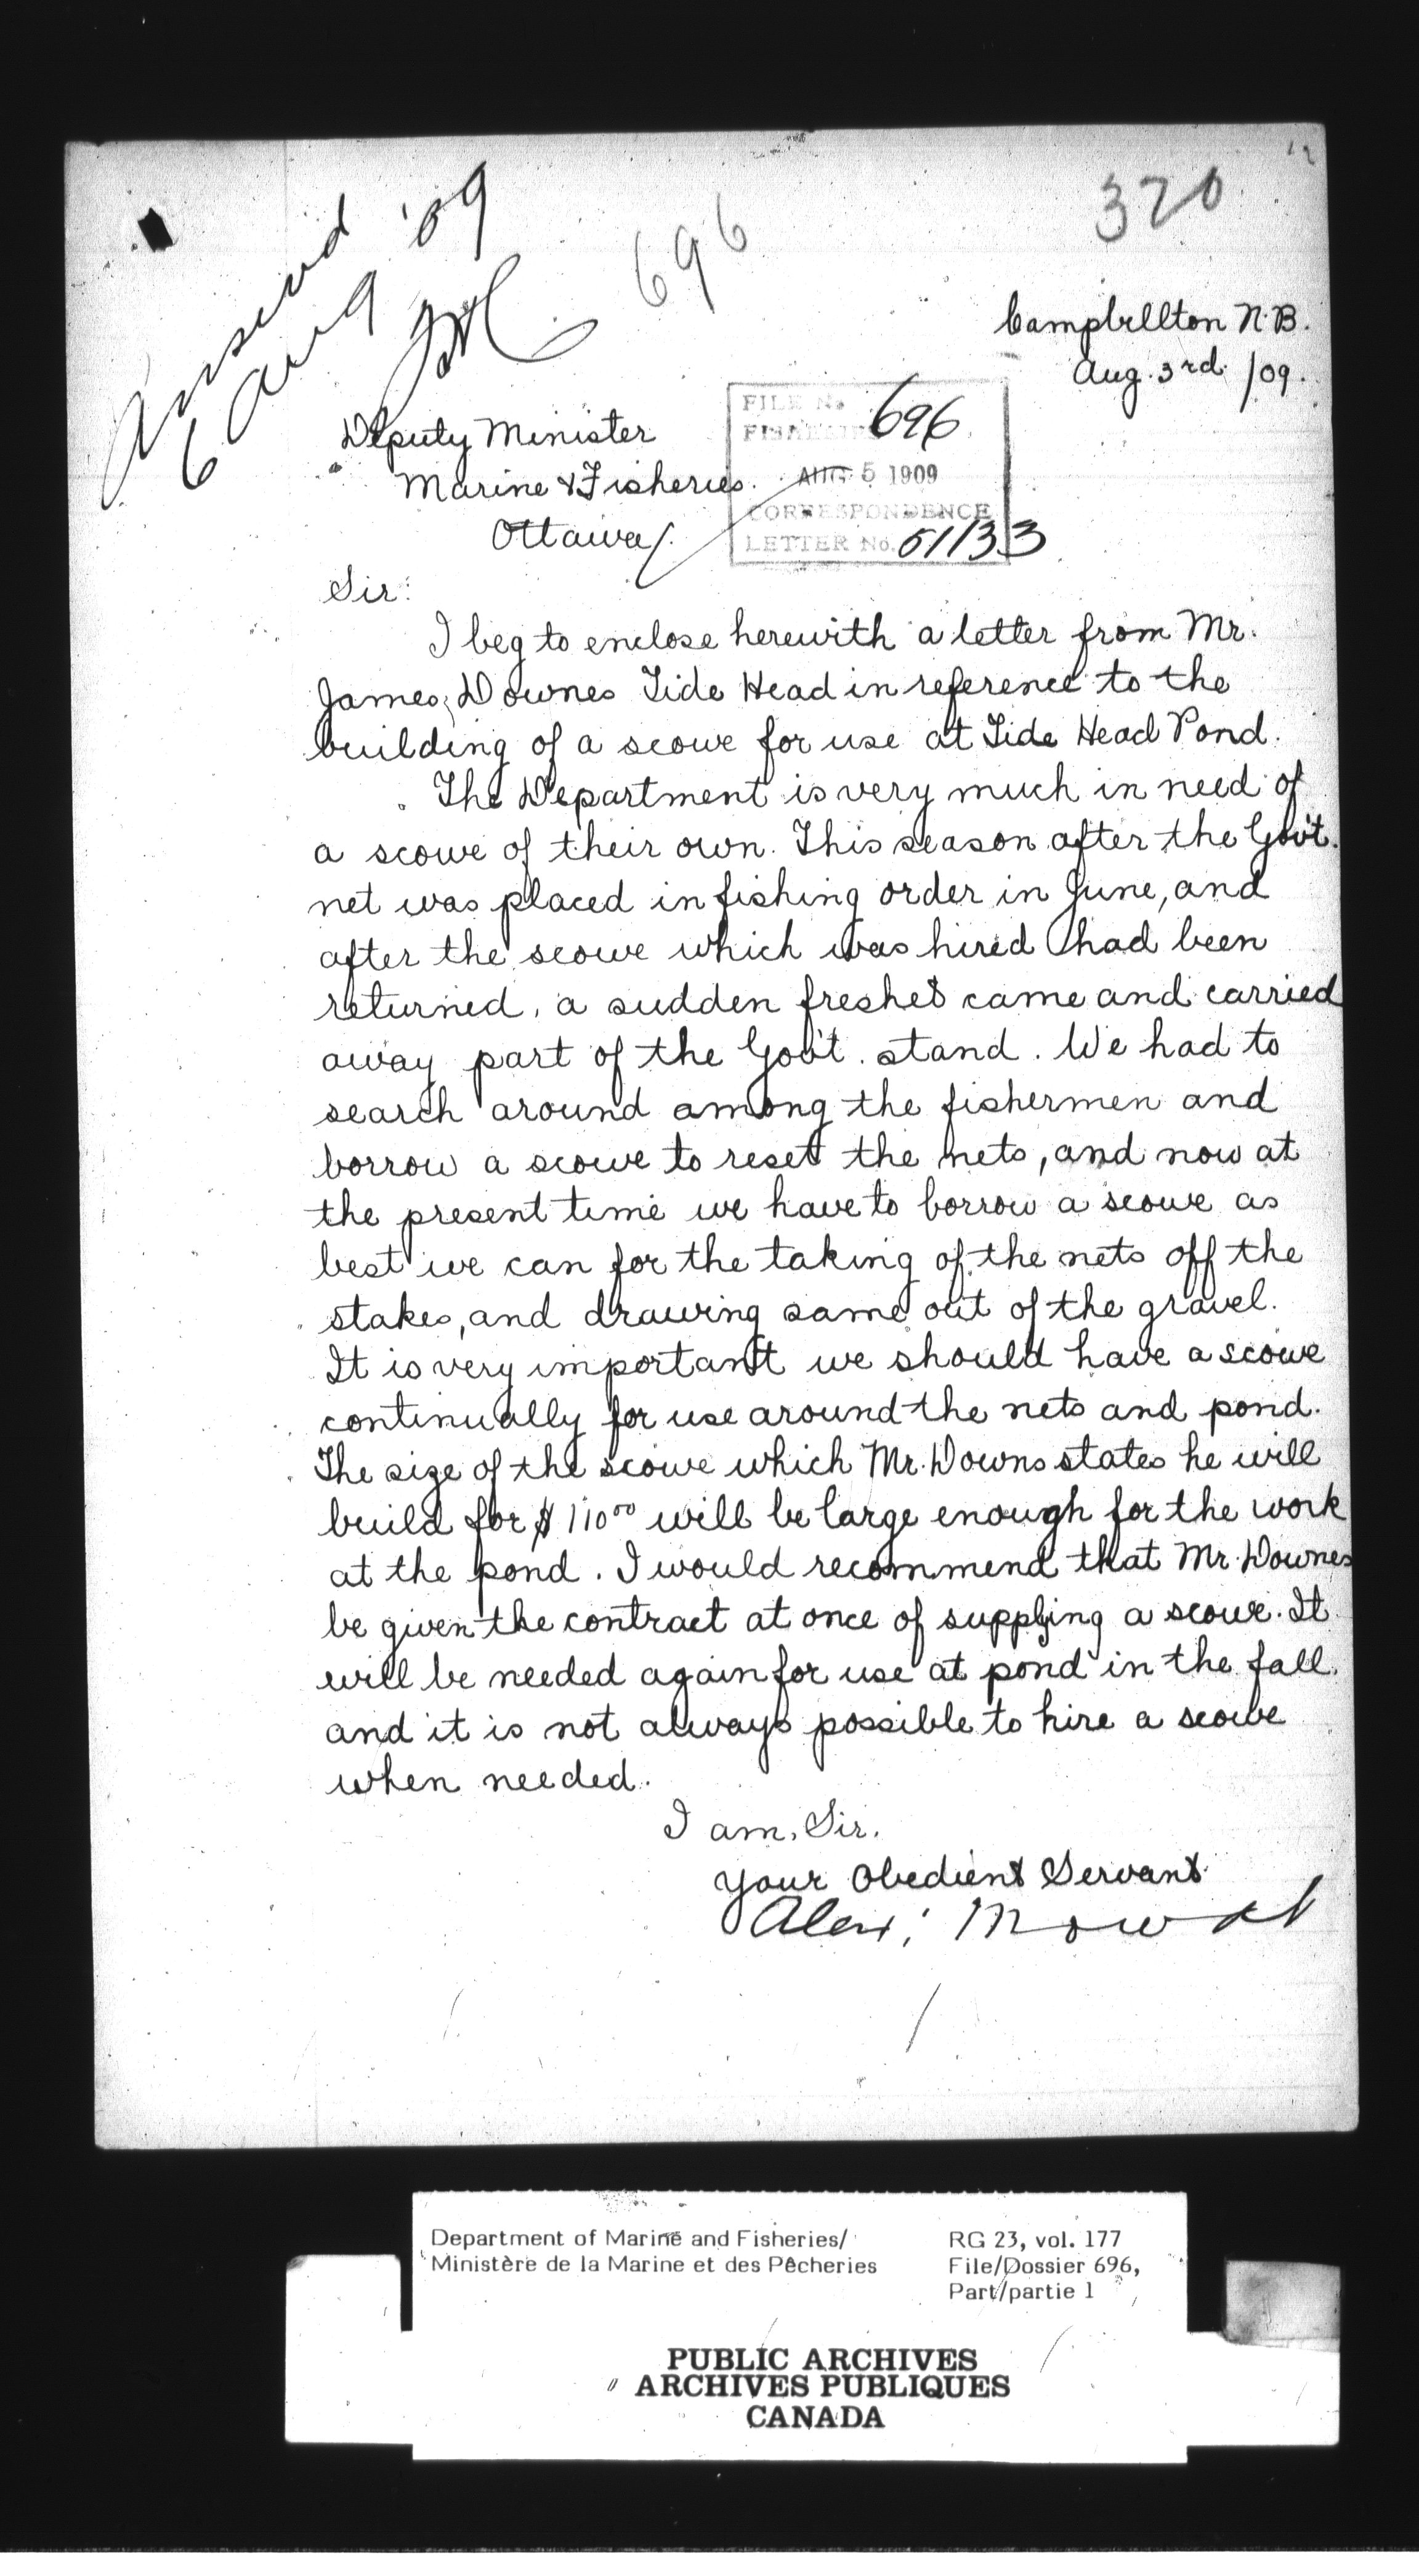 370
Answered
6 Aug '09
696
Campbellton N.B.
Aug. 3rd. /09.
FILE No. 696
FISHERIES
AUG 5 1909
CORRESPONDENCE
LETTER No. 51133
Deputy Minister
Marine & Fisheries.
Ottawa.
Sir:
I beg to enclose herewith a letter from Mr.
James Downes Tide Head in reference to the
building of a scowe for use at Tide Head Pond.
The Department is very much in need of
a scowe of their own. This season after the Gov't.
net was placed in fishing order in June, and
after the scowe which was hired had been
returned, a sudden freshet came and carried
away part of the Gov't. stand. We had to
search around among the fishermen and
borrow a scowe to reset the nets, and now at
the present time we have to borrow a scowe as
best we can for the taking of the nets off the
stakes, and drawing same out of the gravel.
It is very important we should have a scowe
continually for use around the nets and pond.
The size of the scowe which Mr. Downs states he will
build for $110.00 will be large enough for the work
at the pond. I would recommend that Mr. Downes
be given the contract at once of supplying a scowe. It
will be needed again for use at pond in the fall.
and it is not always possible to hire a scowe
when needed.
I am, Sir.
Your Obedient Servant.
Alex; Mowat
Department of Marine and Fisheries/
Ministère de la Marine et des Pêcheries
RG 23, vol. 177
File/Dossier 696,
Part/partie 1
PUBLIC ARCHIVES
ARCHIVES PUBLIQUES
CANADA